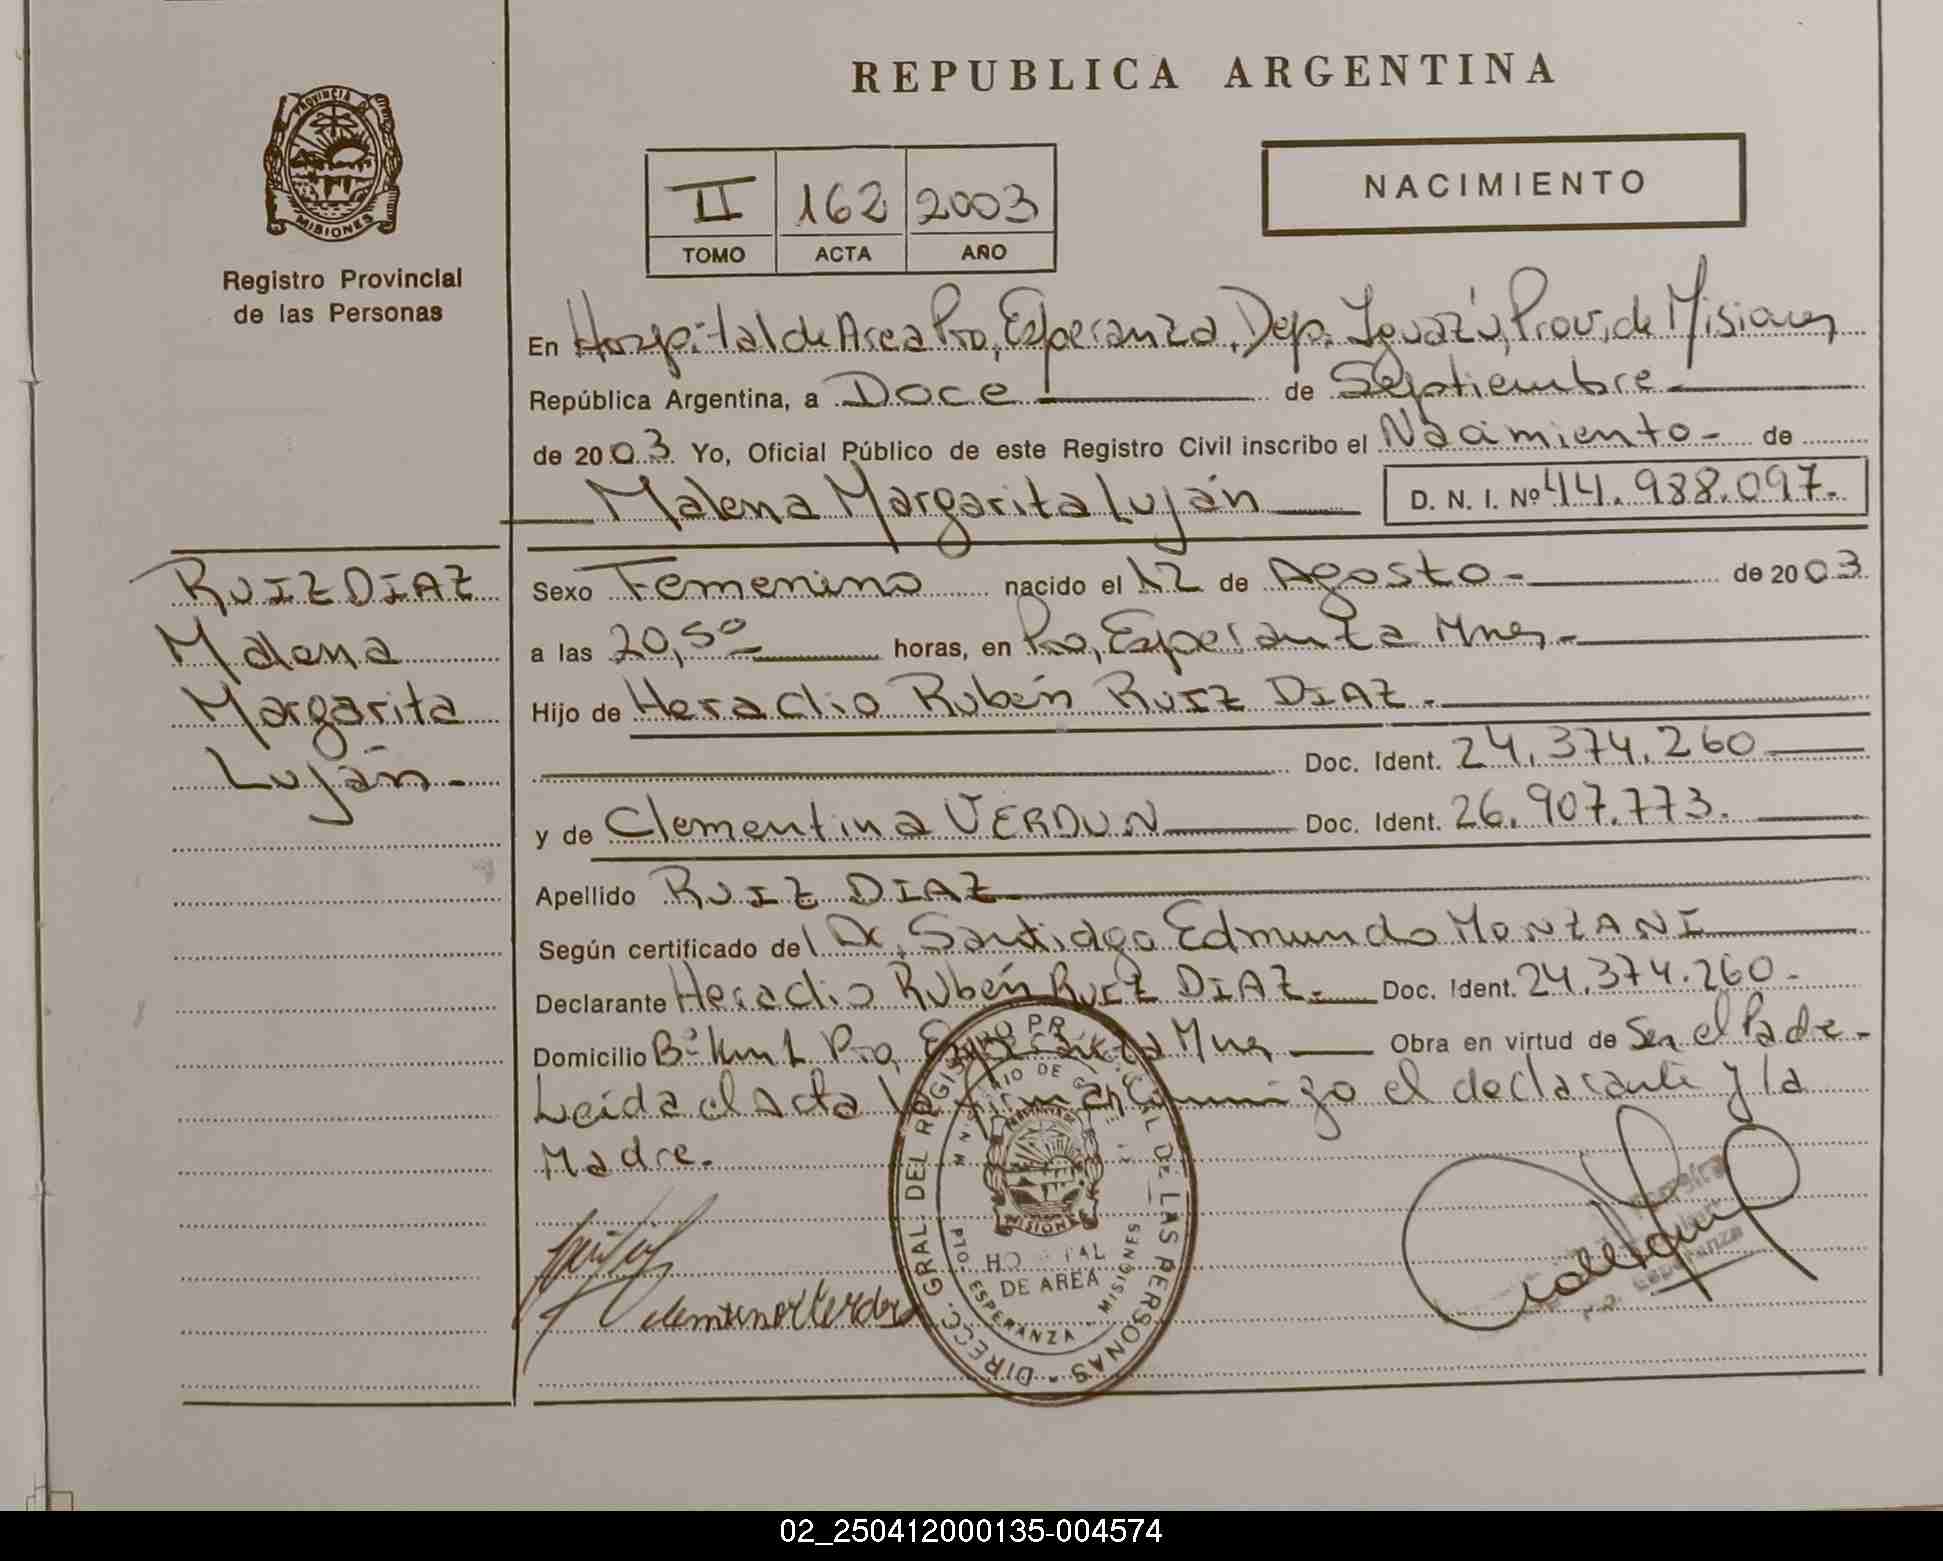 REPUBLICA ARGENTINA
PROVINCIA DE
MISIONES
Registro Provincial
de las Personas
II 162 2003
TOMO ACTA AÑO
NACIMIENTO
En Hospital de Area Pto, Esperanza, Dep. Iguazú, Prov, de Misiones
República Argentina, a Doce de Septiembre
de 2003 Yo, Oficial Público de este Registro Civil inscribo el Nacimiento - de
Malena Margarita Luján D. N. I. Nº 44.988.097.-
RUIZ DIAZ
Malena
Margarita
Luján -
Sexo Femenino nacido el 12 de Agosto - de 2003
a las 20,50 horas, en Pto, Esperanza Mnes -
Hijo de Heraclio Rubén RUIZ DIAZ.-
Doc. Ident. 24.374.260
y de Clementina VERDUN Doc. Ident. 26.907.773.
Apellido RUIZ DIAZ
Según certificado del Dr, Santiago Edmundo MONZANI
Declarante Heraclio Rubén RUIZ DIAZ.- Doc. Ident. 24.374.260.-
Domicilio Bº Km 1 Pto, Esperanza Mnes Obra en virtud de Ser el Padre.-
Leida el Acta la firman conmigo el declarante y la
Madre.
DIRECC. GRAL DEL REGISTRO PR DE LAS PERSONAS
MISIONES
DE AREA
PTO. ESPERANZA - MISIONES
02_250412000135-004574